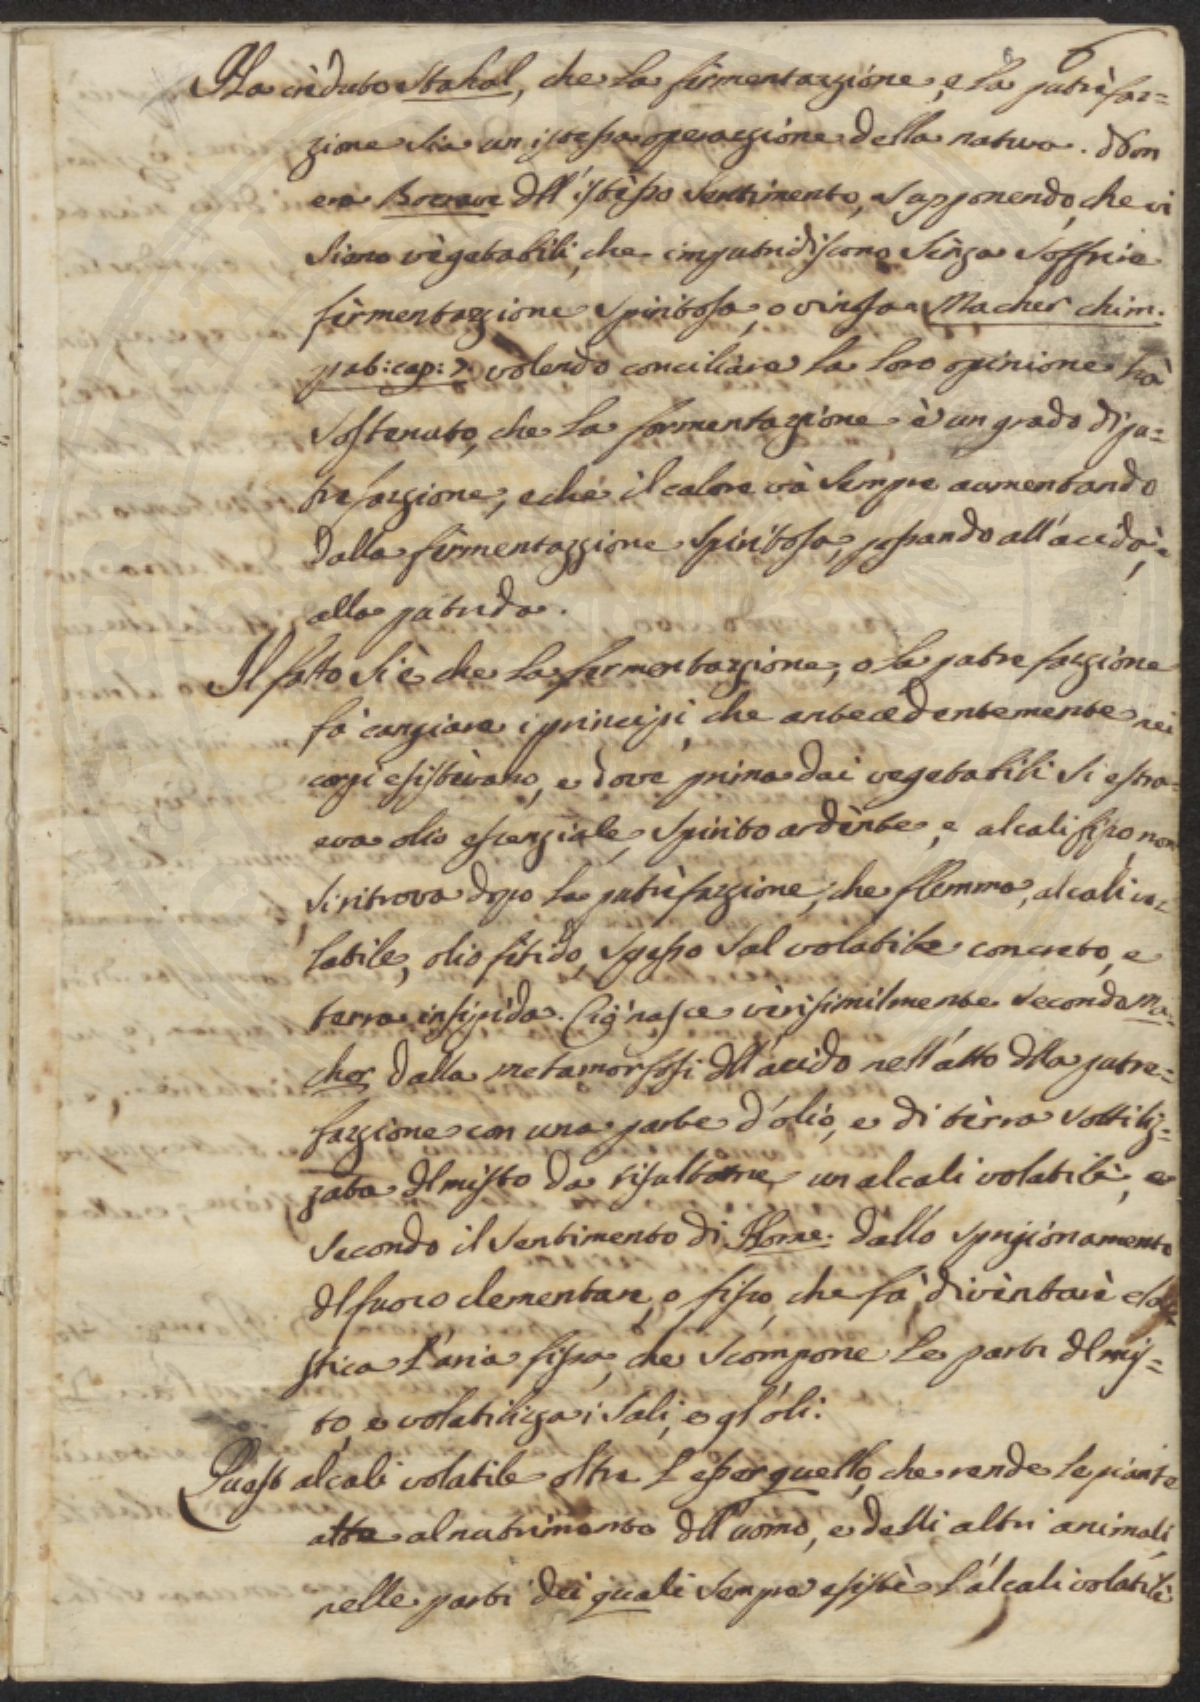 6
Ha creduto Stahal, che la fermentazzione, e la putrefaz=
zione sia un istessa operazzione della natura. Non
era Boerave dell'istesso sentimento, supponendo, che vi
siano vegetabili, che imputridiscono senza soffrire
fermentazzione spiritosa, o vinosa. Macher chim.
pab: cap: 7. volendo conciliare la loro opinione hà
sostenuto, che la fermentazione è un grado di pu=
trefazzione, e che il calore và sempre aumentando
dalla fermentazzione spiritosa, passando all'acido, e
alla putrida.
Il fatto si è che la fermentazzione, o la putrefazzione
fà cangiare i principj, che antecedentemente nei
corpi esistevano, e dove prima dai vegetabili si estra=
eva olio escenziale, spirito ardente, e alcali fisso, non
si ritrova dopo la putrefazzione, che flemma, alcali vo=
latile, olio fetido, spesso sal volatile concreto, e
terra insipida. Ciò nasce verisimilmente secondo Ma=
cher dalla metamorfosi dell'acido nell'atto della putre=
fazzione con una parte d'olio, e di terra sottiliz=
zata del misto da risultarne un alcali volatile, e
secondo il sentimento di Home. dallo sprigionamento
del fuoco elementare, o fisso, che fà diventare ela=
stica l'aria fissa, che scompone le parti del mis=
to, e volatilizza i sali, e gl'oli.
Quest alcali volatile oltre l'esser quello, che rende le piante
atte al nutrimento dell'uomo, e delli altri animali,
nelle parti dei quali sempre esiste l'alcali volatile